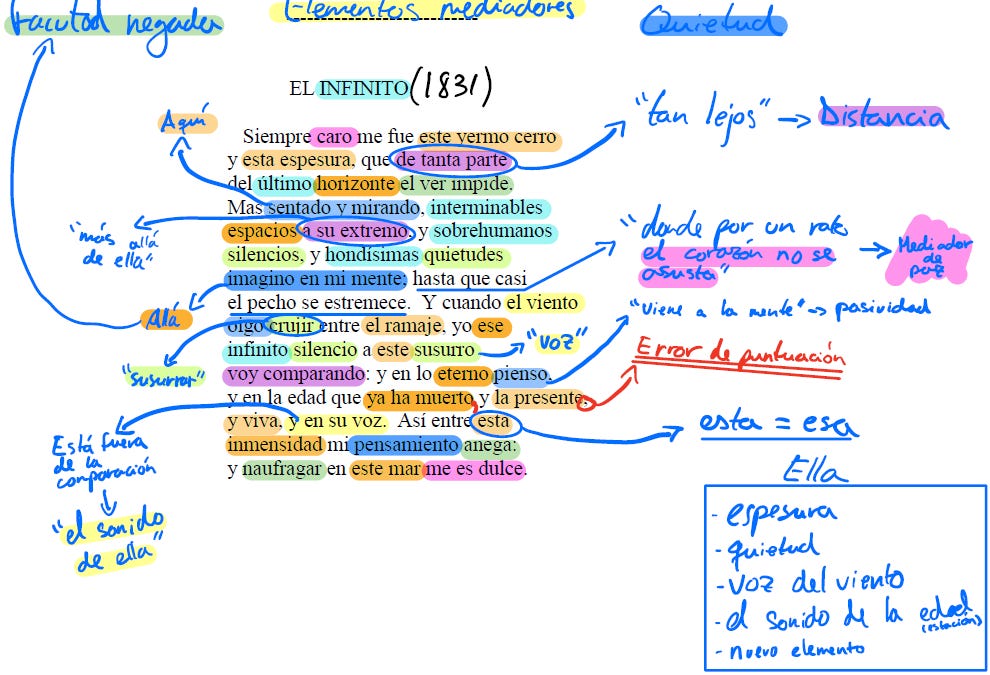 Facultad negada
Elementos mediadores
Quietud
EL INFINITO (1831)
Aquí
"tan lejos" → Distancia
Siempre caro me fue este yermo cerro
y esta espesura, que de tanta parte
del último horizonte el ver impide.
Mas sentado y mirando, interminables
espacios a su extremo, y sobrehumanos
silencios, y hondísimas quietudes
imagino en mi mente; hasta que casi
el pecho se estremece. Y cuando el viento
oigo crujir entre el ramaje, yo ese
infinito silencio a este susurro
voy comparando: y en lo eterno pienso,
y en la edad que ya ha muerto, y la presente,
y viva, y en su voz. Así entre esta
inmensidad mi pensamiento anega:
y naufragar en este mar me es dulce.
"más allá
de ella"
Allá
"susurrar"
Está fuera
de la
comparación
"el sonido
de ella"
"donde por un rato
el corazón no se
asusta"
Mediador
de
paz
"viene a la mente" → pasividad
"voz"
Error de puntuación
esta = esa
Ella
- espesura
- quietud
- voz del viento
- el sonido de la edad
(estación)
- nuevo elemento